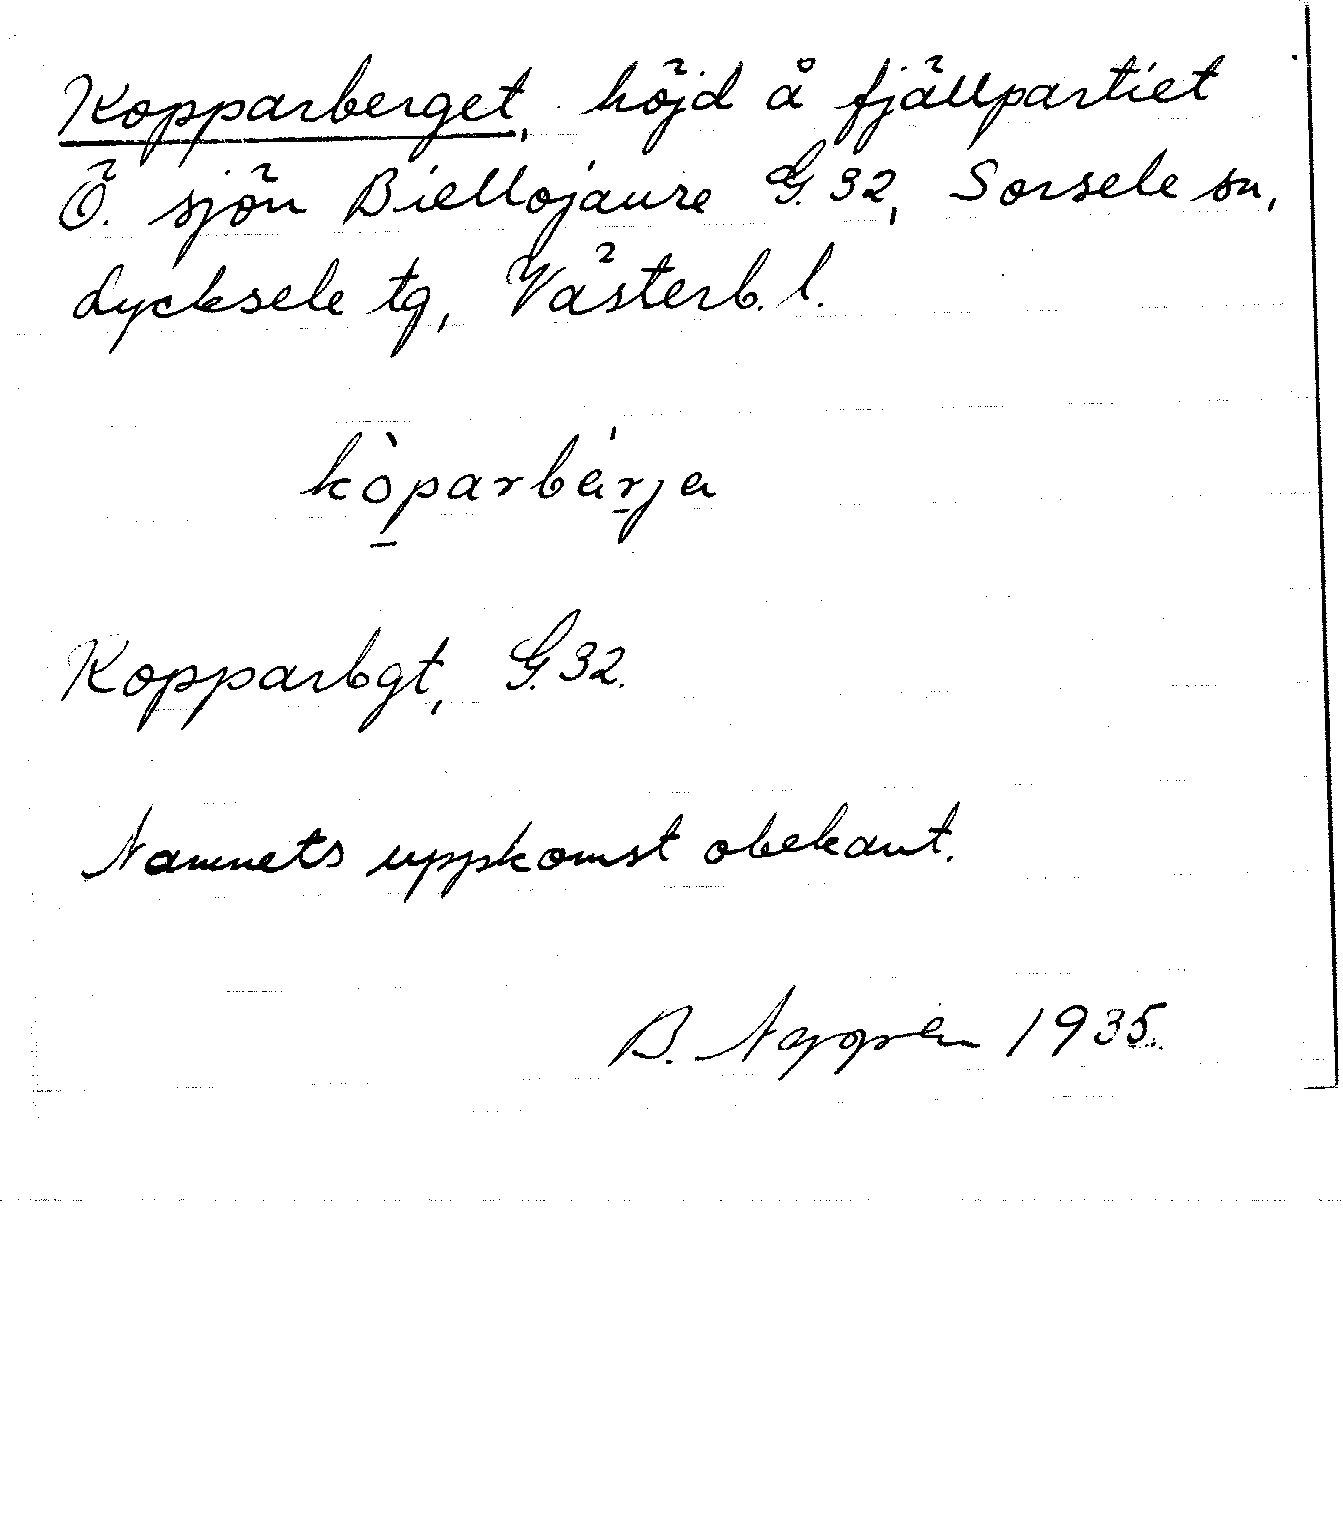 Kopparberget, höjd å fjällpartiet
Ö. sjön Biellojaure G. 32, Sorsele sn,
Lycksele tg, Västerb. l.
kòparbárja
Kopparbgt, G. 32.
Namnets uppkomst obekant.
B. 1935.